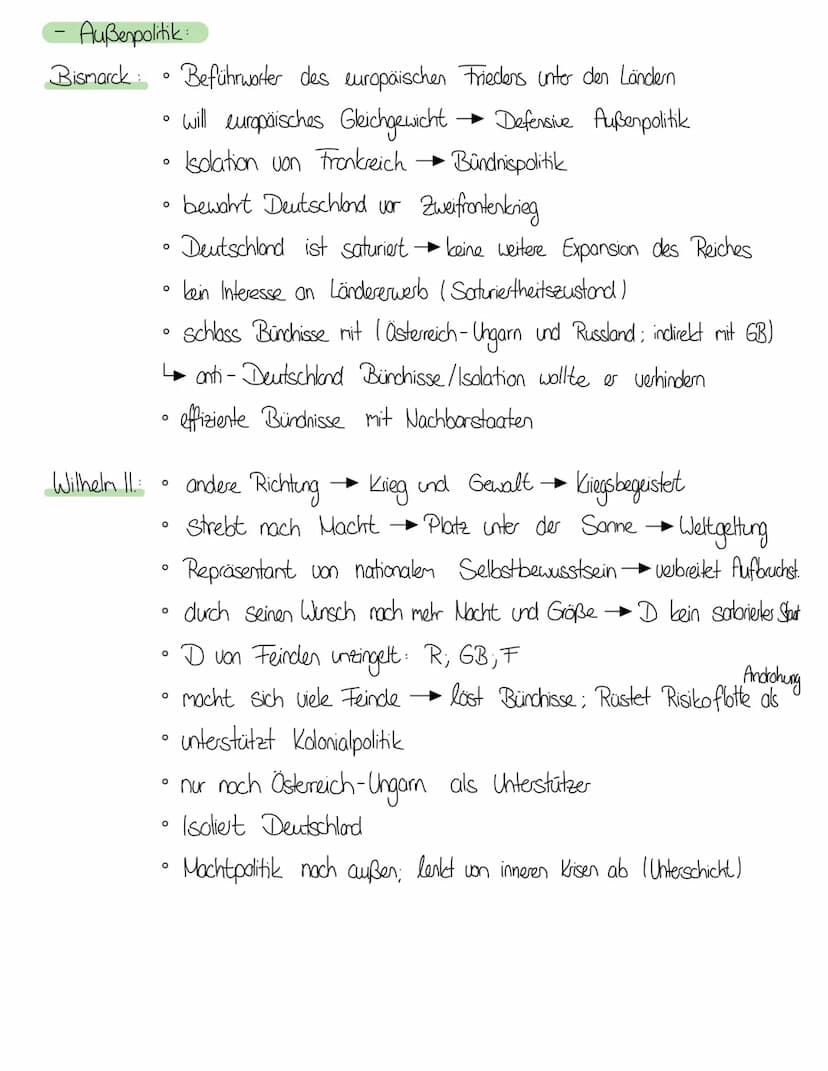 - Außenpolitik:
Bismarck: ° Beführworter des europäischen Friedens unter den Ländern
° will europäisches Gleichgewicht → Defensive Außenpolitik
° Isolation von Frankreich → Bündnispolitik
° bewahrt Deutschland vor Zweifrontenkrieg
° Deutschland ist saturiert → keine weitere Expansion des Reiches
° kein Interesse an Ländererwerb (Saturiertheitszustand)
° schloss Bündnisse mit (Österreich-Ungarn und Russland; indirekt mit GB)
↳ anti-Deutschland Bündnisse/Isolation wollte er verhindern
° effiziente Bündnisse mit Nachbarstaaten
Wilhelm II.: ° andere Richtung → Krieg und Gewalt → Kriegsbegeistert
° strebt nach Macht → Platz unter der Sonne → Weltgeltung
° Repräsentant von nationalem Selbstbewusstsein → verbreitet Aufbruchst.
° durch seinen Wunsch nach mehr Macht und Größe → D kein saturiertes Staat
° D von Feinden umzingelt: R; GB; F
° macht sich viele Feinde → löst Bündnisse; Rüstet Risikoflotte als Androhung
° unterstützt Kolonialpolitik
° nur noch Österreich-Ungarn als Unterstützer
° Isoliert Deutschland
° Machtpolitik nach außen; lenkt von inneren Krisen ab (Unterschicht)